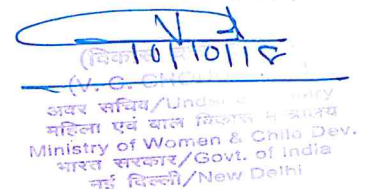 10/10/18
(V. C.
अवर सचिव/Under
महिला एवं बाल विकास मंत्रालय
Ministry of Women & Child Dev.
भारत सरकार/Govt. of India
नई दिल्ली/New Delhi